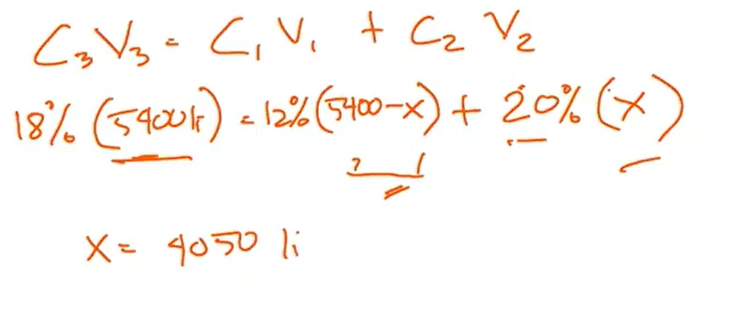 C₃V₃ = C₁V₁ + C₂V₂
18% (5400li) = 12% (5400-x) + 20% (x)
?
x = 4050 li